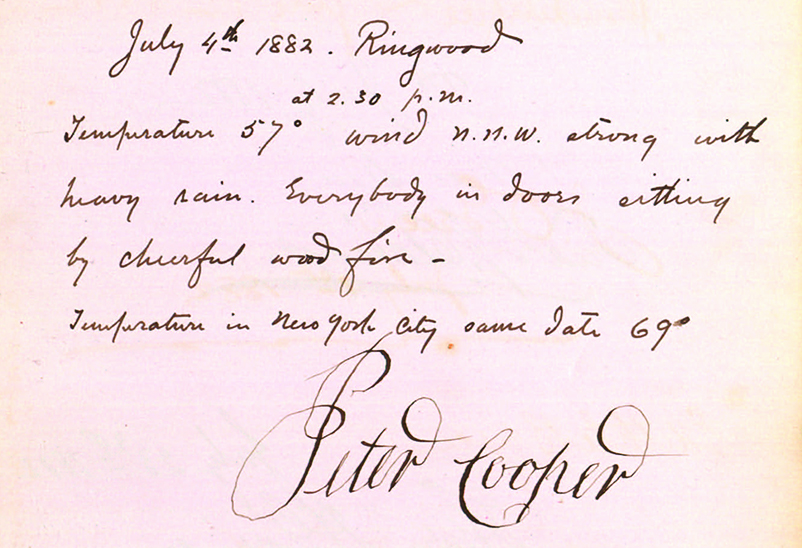 July 4th 1882. Ringwood
at 2.30 p.m.
Temperature 57° wind N.N.W. strong with
heavy rain. Everybody in doors sitting
by cheerful wood fire -
Temperature in New York City same date 69°
Peter Cooper